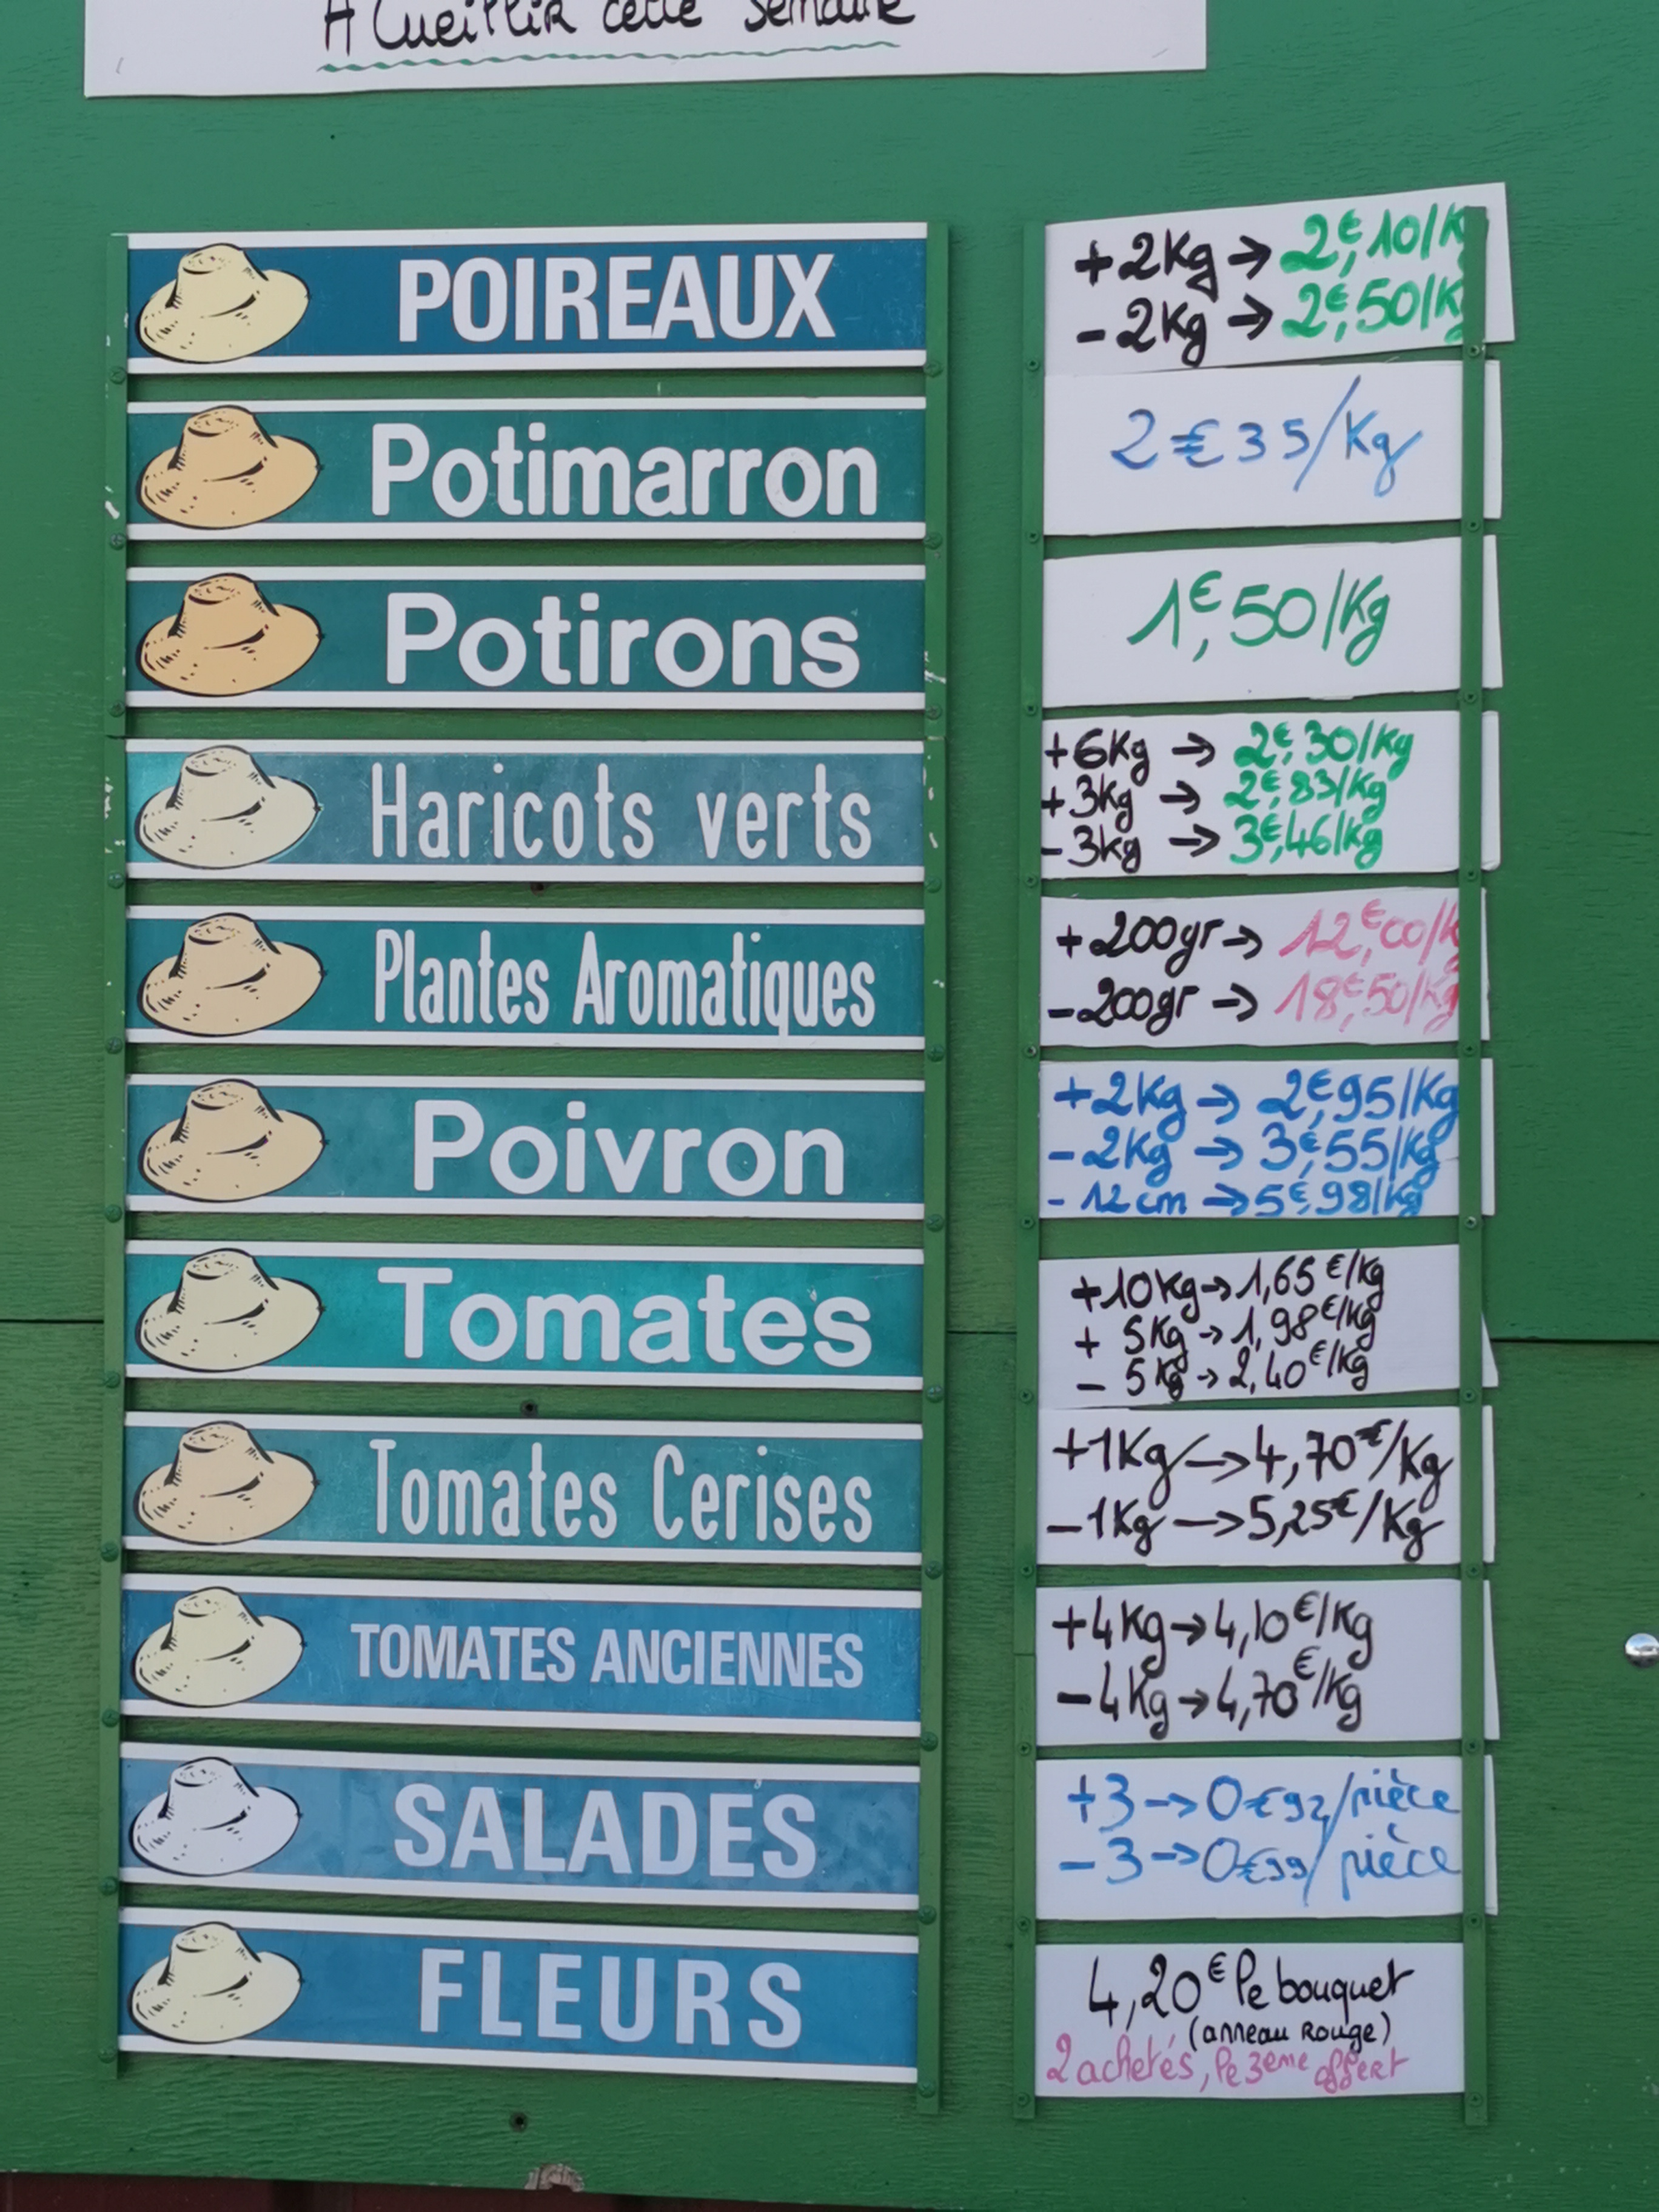 A Cueillir cette semaine
POIREAUX
+2Kg → 2€,10/K
-2Kg → 2€,50/K
Potimarron
2€35/Kg
Potirons
1€,50/Kg
Haricots verts
+6Kg → 2€,30/Kg
+3Kg → 2€,83/Kg
-3kg → 3€,46/kg
Plantes Aromatiques
+200gr → 12€,00/k
-200gr → 18€,50/Kg
Poivron
+2Kg → 2€,95/Kg
-2Kg → 3€,55/Kg
-12cm → 5€,98/kg
Tomates
+10Kg → 1,65€/Kg
+ 5Kg → 1,98€/kg
- 5Kg → 2,40€/Kg
Tomates Cerises
+1Kg → 4,70€/Kg
-1Kg → 5,25€/Kg
TOMATES ANCIENNES
+4Kg → 4,10€/Kg
-4Kg → 4,70€/Kg
SALADES
+3 → 0€92/pièce
-3 → 0€99/pièce
FLEURS
4,20€ le bouquet
(anneau Rouge)
2 achetés, le 3eme offert